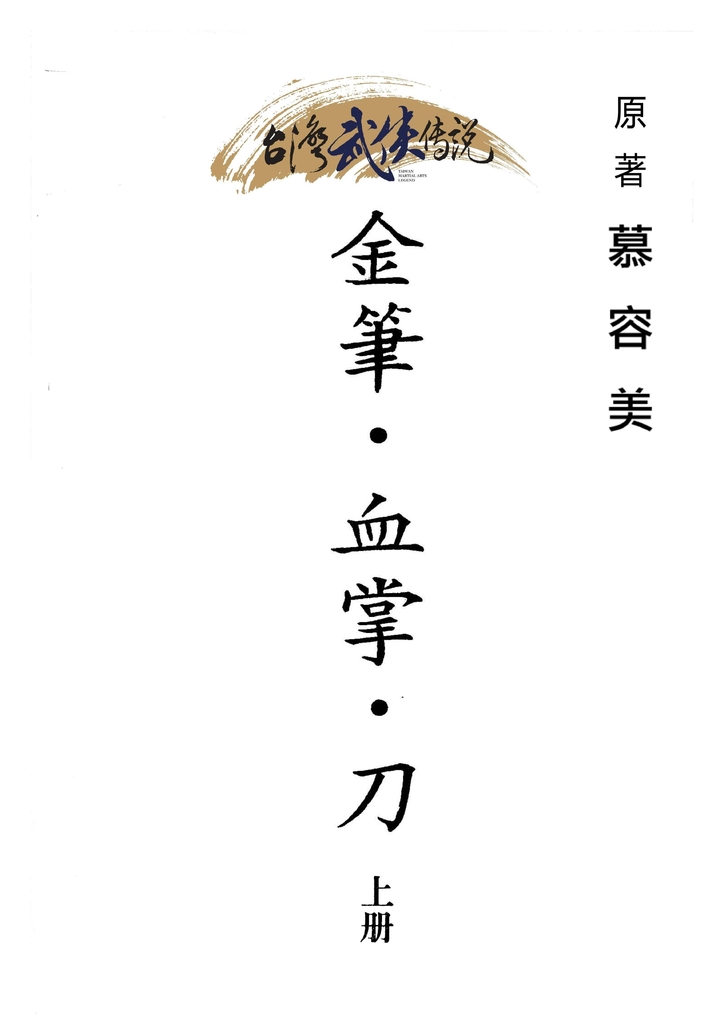 台灣武侠传説
TAIWAN
MARTIAL ARTS
LEGEND
原著 慕容美
金筆・血掌・刀
上册